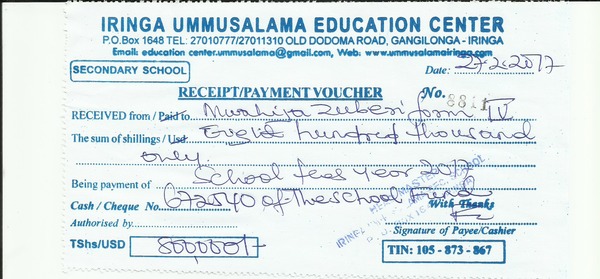 IRINGA UMMUSALAMA EDUCATION CENTER
P.O.Box 1648 TEL: 27010777/27011310 OLD DODOMA ROAD, GANGILONGA - IRINGA
Email: education center.ummusalama@gmail.com, Web: www.ummusalamairinga.com
SECONDARY SCHOOL Date: 27.2.2017
RECEIPT/PAYMENT VOUCHER No. 8811
RECEIVED from / Paid to Mwahija Zuberi form IV
The sum of shillings / Usd Eight hundred thousand
only.
Being payment of School fees year 2017
Cash / Cheque No. 672540 of The school Fund With Thanks
Authorised by
Signature of Payee/Cashier
TShs/USD 800,000/-
TIN: 105 - 873 - 867
HEADMASTER